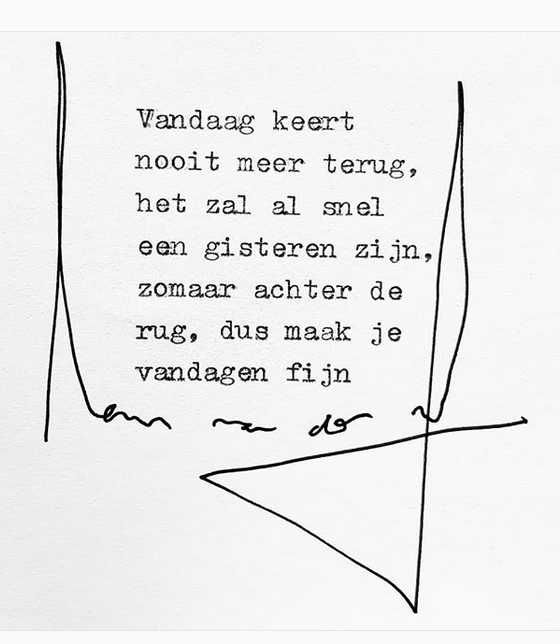 Vandaag keert
nooit meer terug,
het zal al snel
een gisteren zijn,
zomaar achter de
rug, dus maak je
vandagen fijn